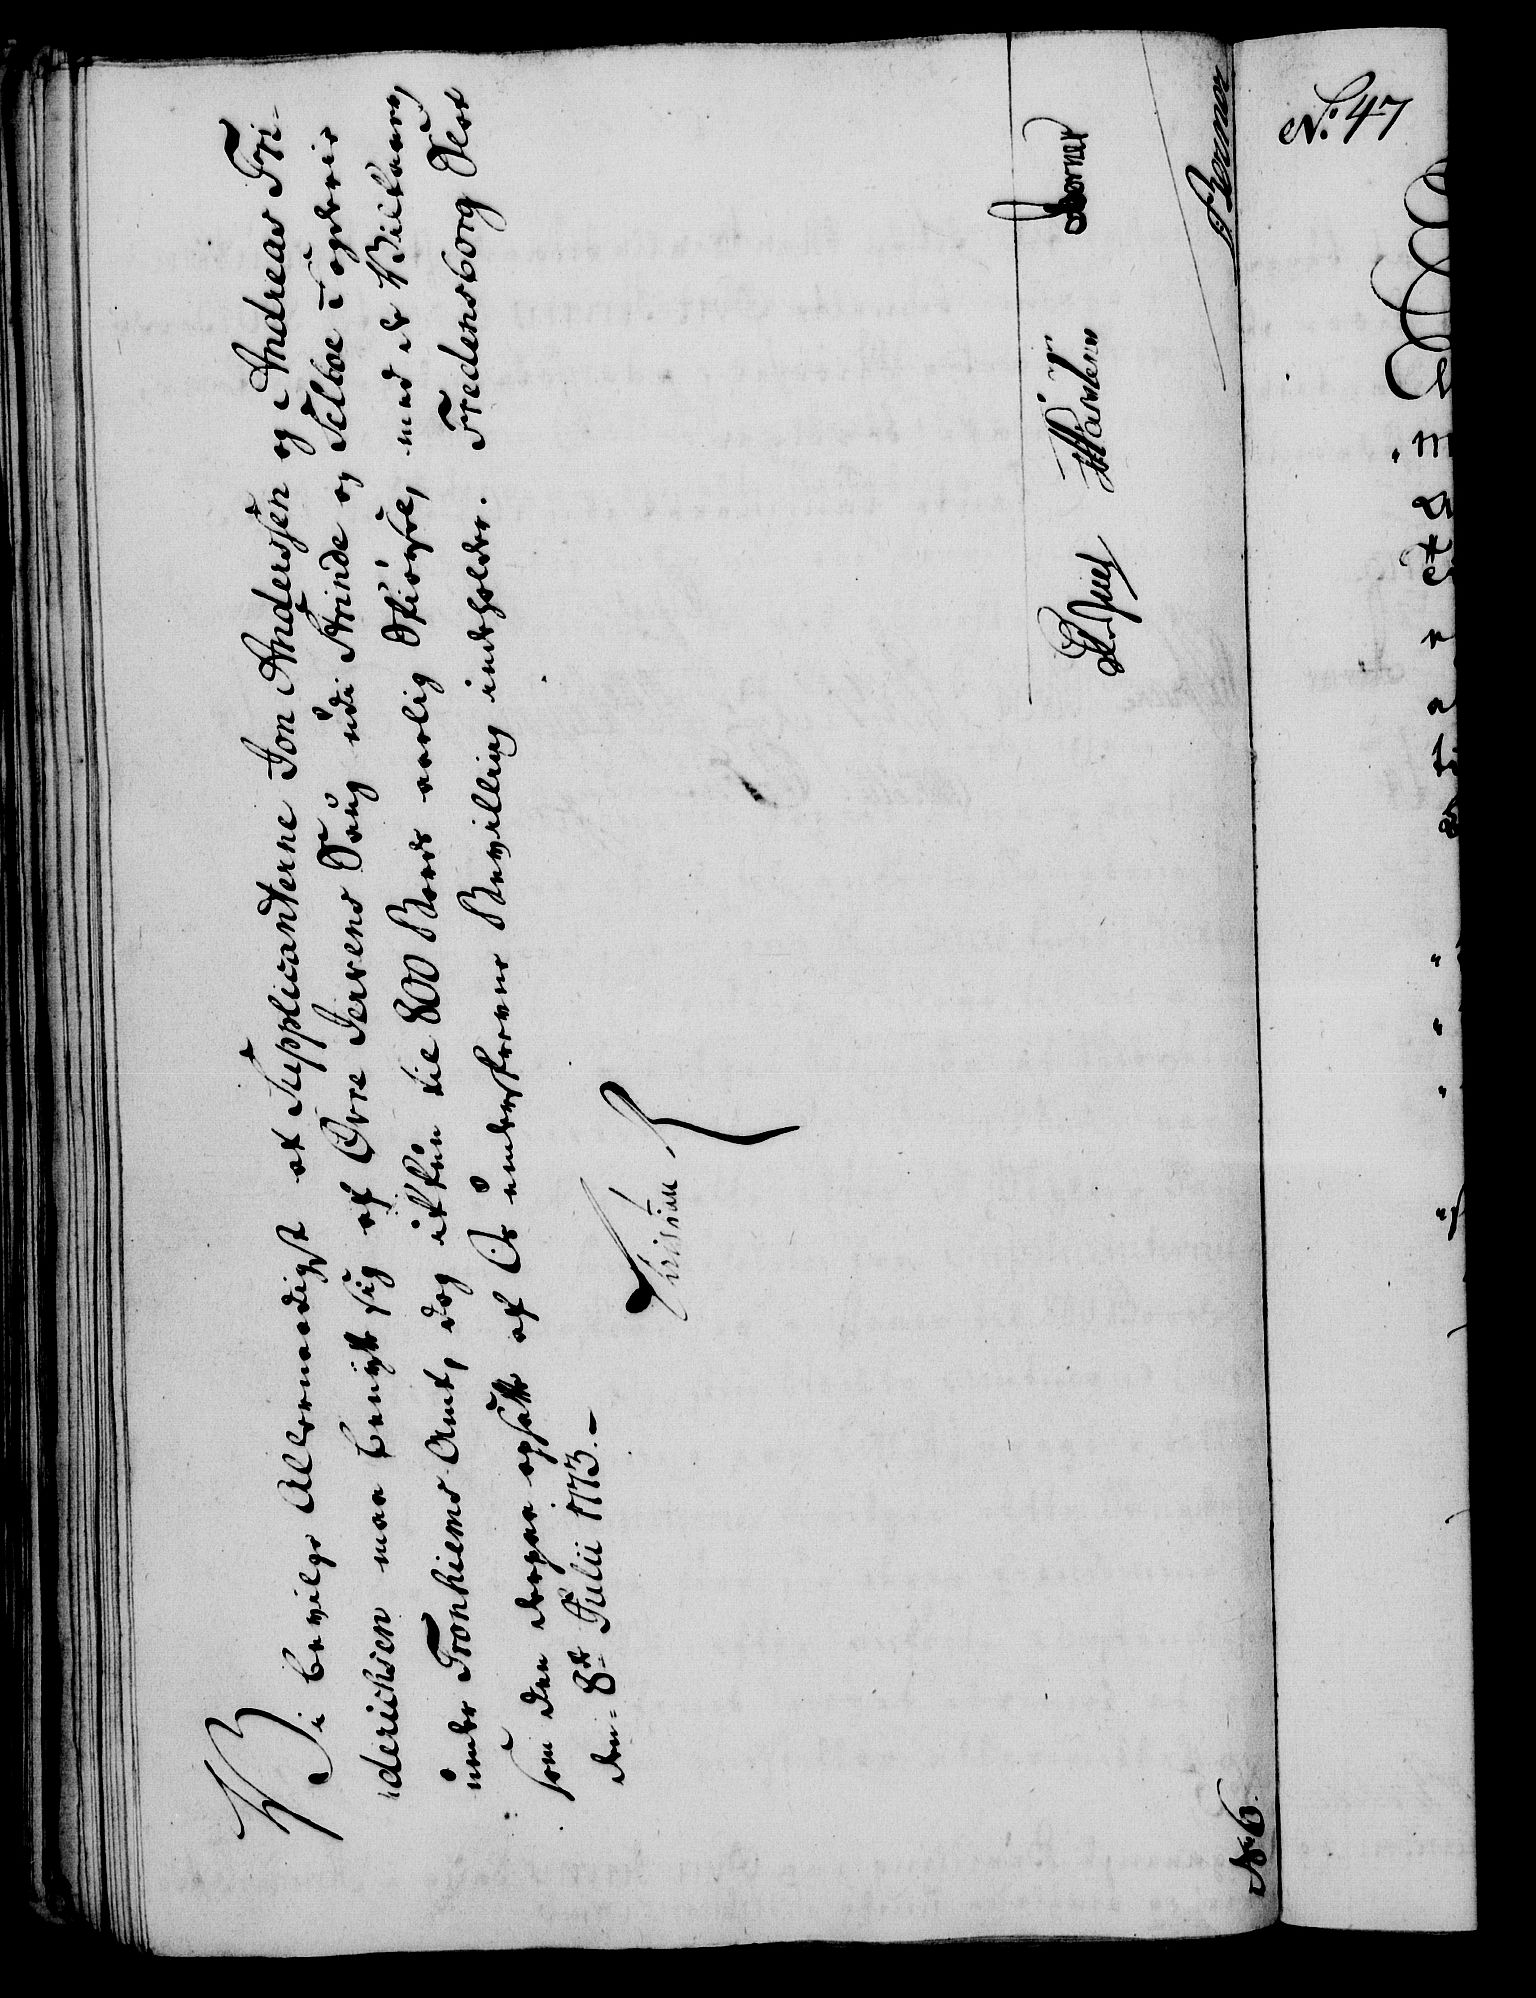 Vi bevilge Allernaadigst at Supplicanterne Jon Anderssen og Andreas Fri-
derichsen maa benytte sig af Øvre Jervens Saug udi Strinde og Selboe Fogderie
under Tronhiems Amt, dog ikkun til 800 Bords aarlig Skiørsel, med de Vilkaar,
som den derpaa opsatte af Os underskrevne Bevilling indeholder. Fredensborg Slot
den 8de Julii 1773.
Christian
Juel
Borner
Borner
No 6.
No: 47